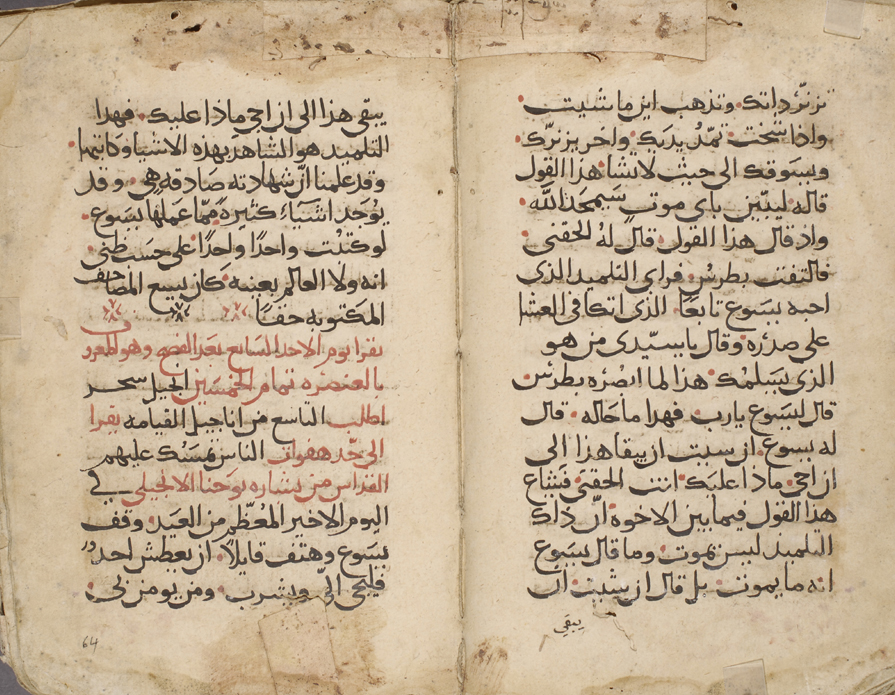 تزنّر ذاتك وتذهب اين ما شيت
واذا شخت تمدّ يديك واخر يزنرك
ويسوقك الى حيث لا تشا هذا القول
قاله ليبيّن باي موت سيمجد الله
واذ قال هذا القول قال له الحقني
فالتفت بطرس فراى التلميذ الذي
احبه يسوع تابعًا الذي اتكا في العشا
على صدره وقال يا سيّدي من هو
الذي يسلمك هذا لما ابصره بطرس
قال ليسوع يارب فهدا ما حاله قال
له يسوع ان سيت ان يبقا هذا الى
ان اجي ماذا عليك انت الحقني فشاع
هذا القول فيما بين الاخوة انّ ذاك
التلميذ ليس يموت وما قال يسوع
انه ما يموت بل قال ان شيت ان
يبقي
يبقى هذا الى ان اجي ماذا عليك فهدا
التلميذ هو الشاهد بهذه الاشيا وكاتبها
وقد علمنا انّ شهادته صادقه هي وقد
يوجد اشيآء كثيرة ممّا عملها يسوع
لو كتبت واحدًا واحدًا على حسب ظني
انه ولا العالم بعينه كان يسع المصاحف
المكتوبه حقًا
يقرا يوم الاحد السابع بعد الفصح وهو المعروف
بالعنصره تمام الخمسين انجيل سحر
اطلب التاسع من اناجيل القيامه يقرا
الى حد هفوات الناس تمسك عليهم
القداس من بشاره يوحنا الانجيلي في
اليوم الاخير المُعظّم من العيد وقف
يسوع وهتف قايلاً ان يعطش احد
فليجي اليّ ويشرب ومن يومن بي
64